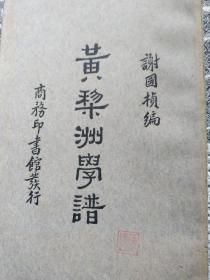 謝國楨編
黃棃洲學譜
商務印書館發行